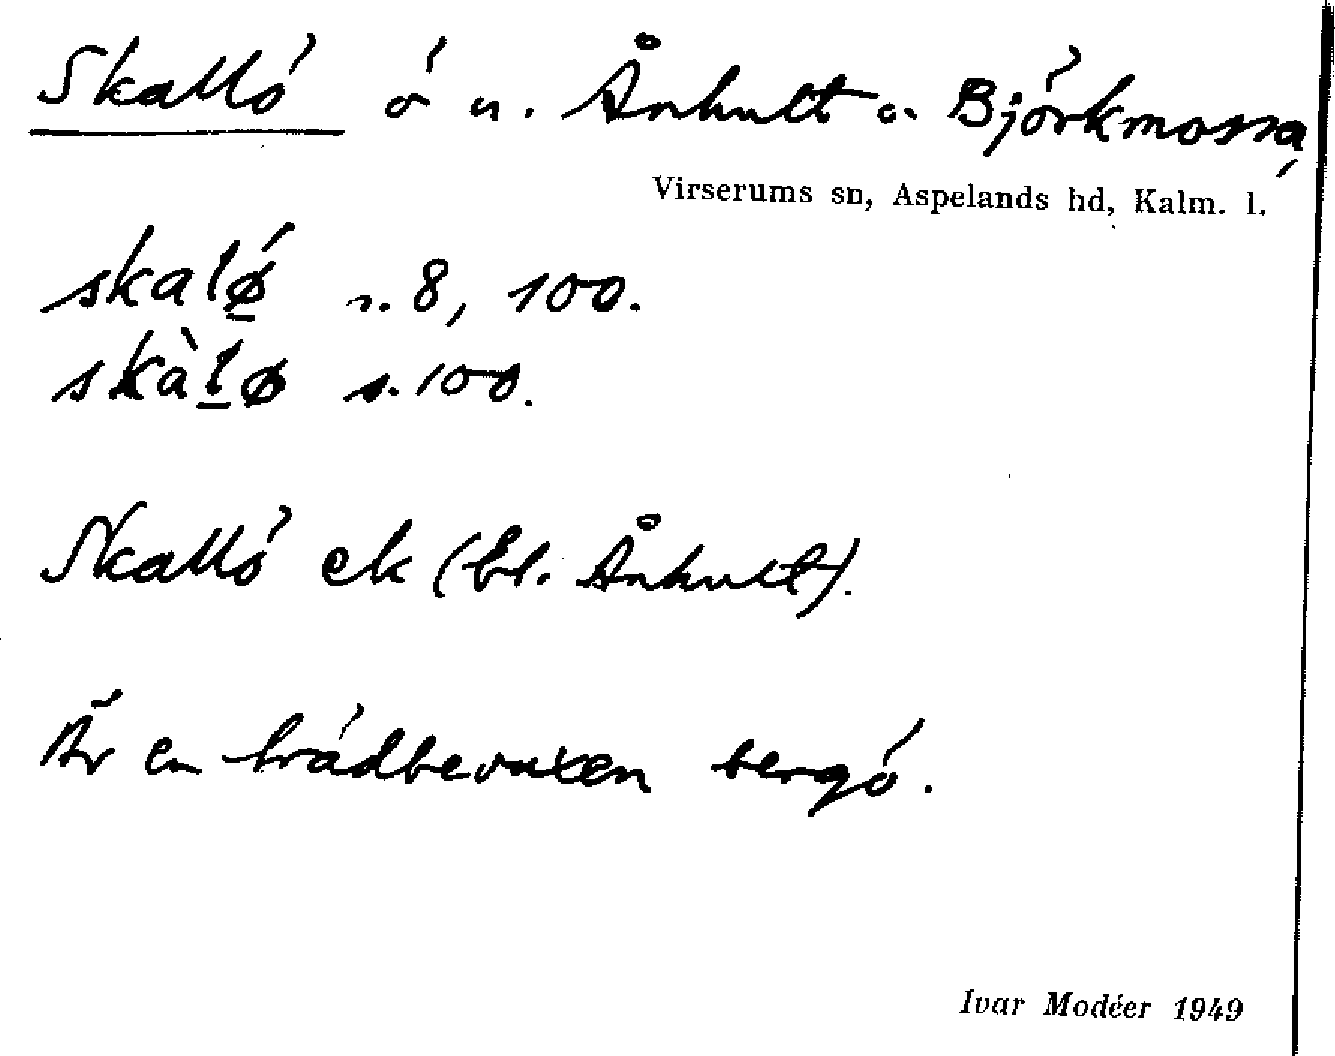 Skallö ö u. Ånhult o. Björkmossa,
Virserums sn, Aspelands hd, Kalm. l.
skalǿ s. 8, 100.
skàlø s. 100.
Skallö ek (bl. Ånhult).
Är en trädbevuxen bergö.
Ivar Modéer 1949